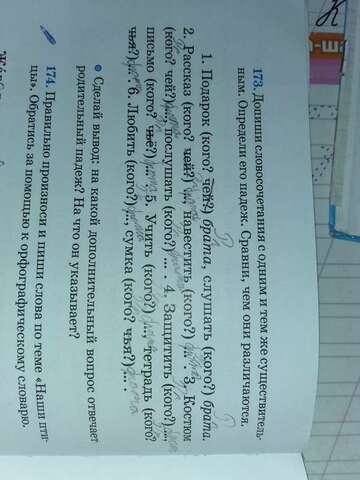 173. Допиши словосочетания с одним и тем же существитель-
ным. Определи его падеж. Сравни, чем они различаются.
1. Подарок (кого? чей?) брата, слушать (кого?) брата.
2. Рассказ (кого? чей?) ..., навестить (кого?) ... . 3. Костюм
(кого? чей?) ..., послушать (кого?) ... . 4. Защитить (кого?) ...,
письмо (кого? чьё?) ... . 5. Учить (кого?) ..., тетрадь (кого?
чья?) ... . 6. Любить (кого?) ..., сумка (кого? чья?) ... .
● Сделай вывод: на какой дополнительный вопрос отвечает
родительный падеж? На что он указывает?
174. Правильно произноси и пиши слова по теме «Наши пти-
цы». Обратись за помощью к орфографическому словарю.